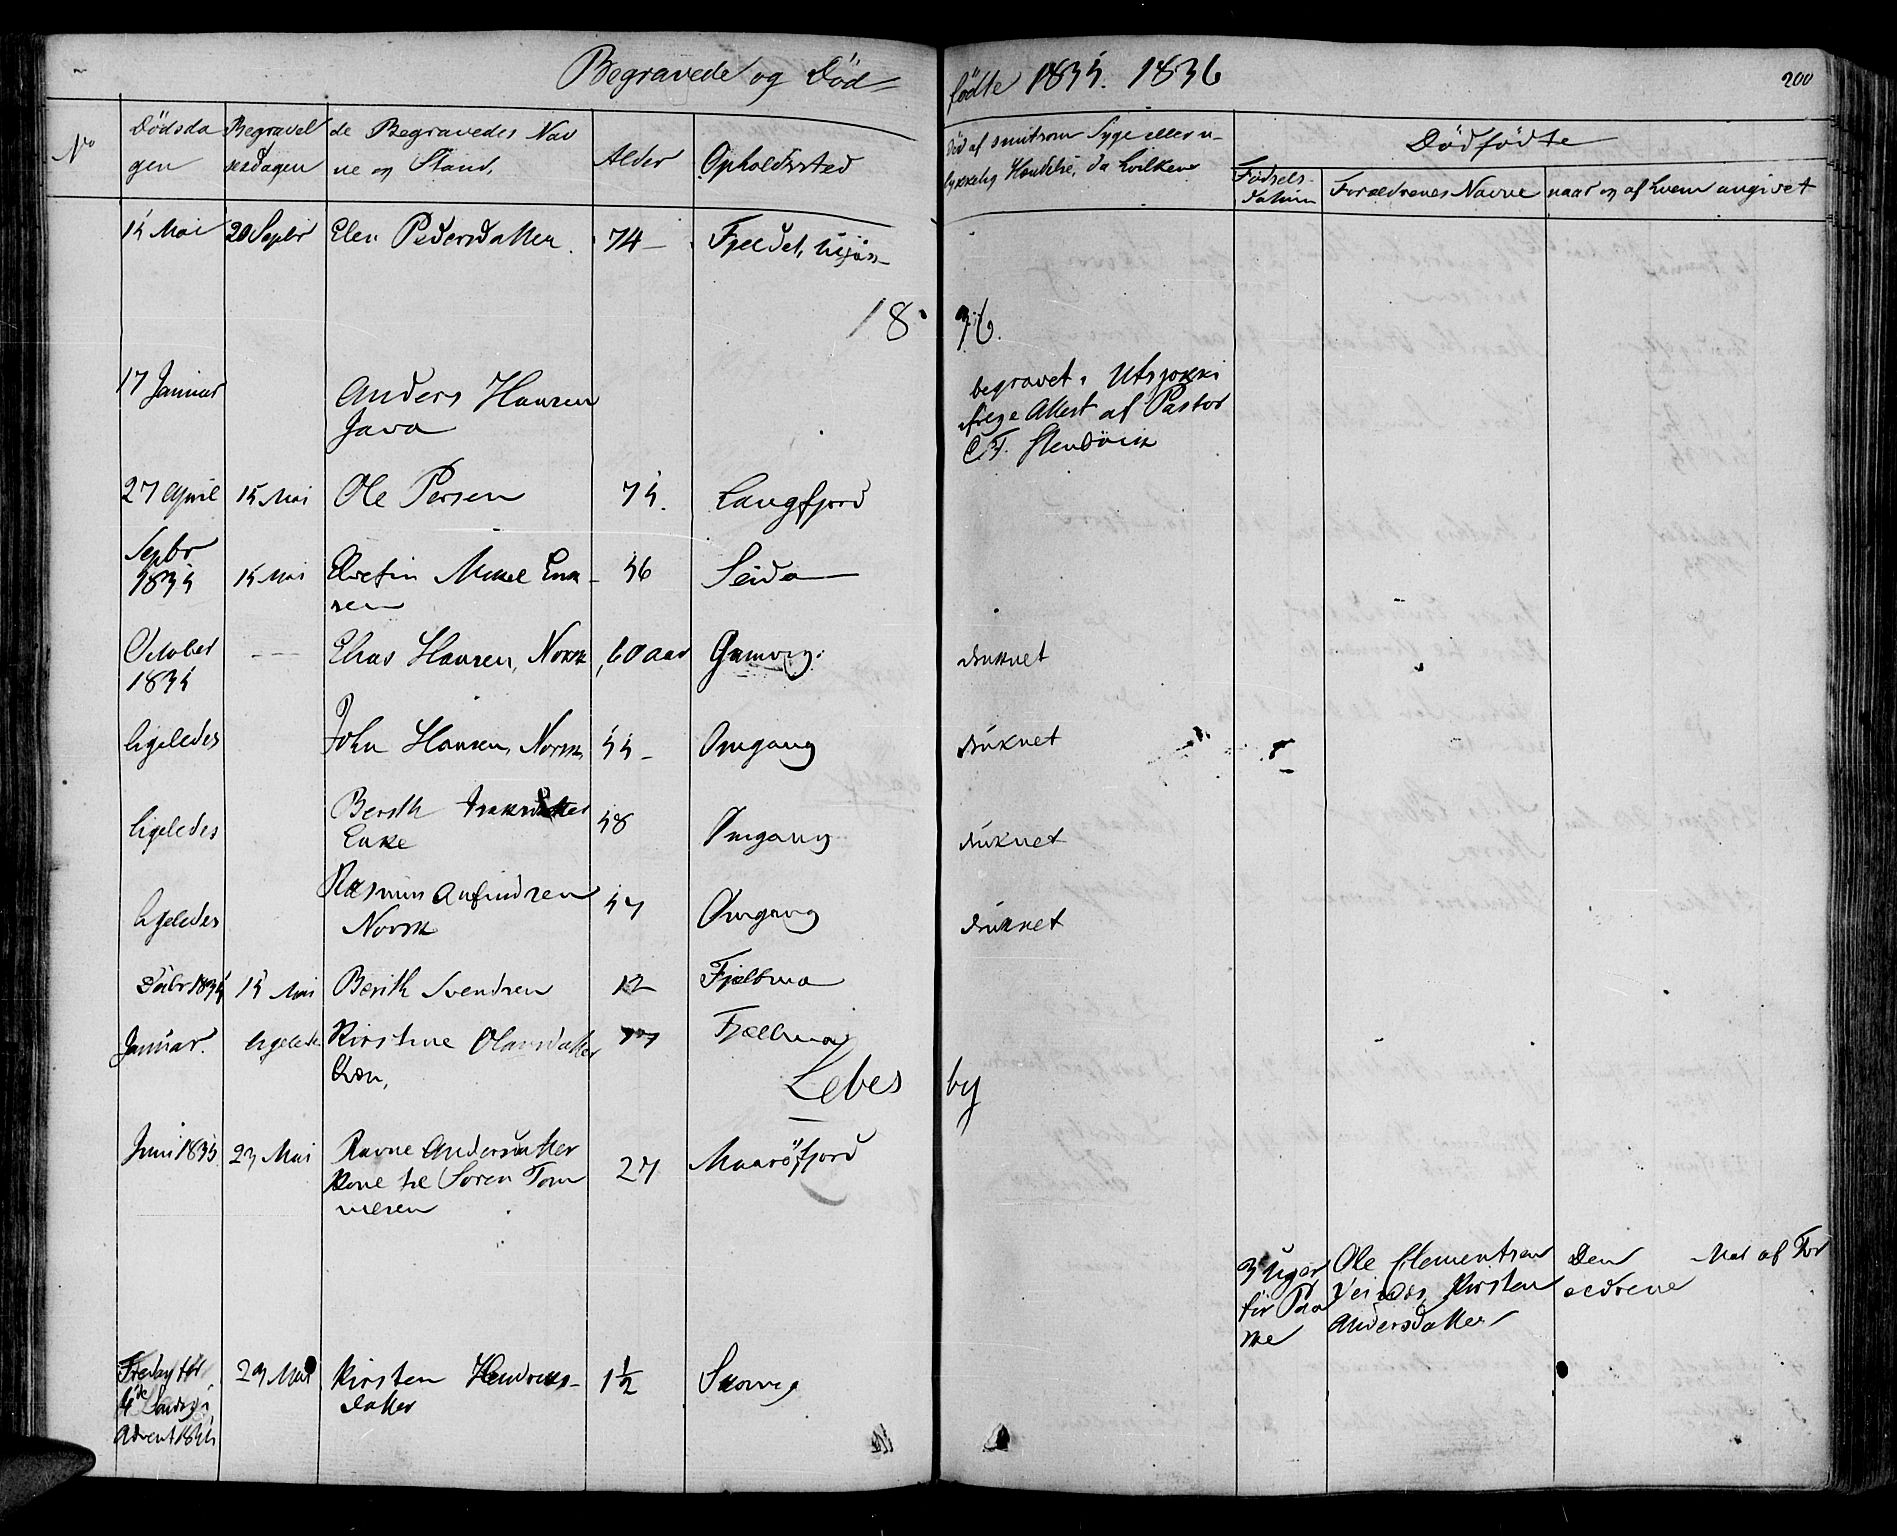 Begravede og Död-
födte 1835. 1836
200
No
Dödsda
gen
Begravel
sesdagen
de Begravedes Nav
ne og Stand,
Alder
Opholdssted
Död af smitsom Syge eller u-
lykkelig Hændelse, da hvilken
Dödfödte
Födsels
datum
Forældrenes Navne
naar og af hvem angivet
15 Mai 20 Sepbr Elen Pedersdatter. 74 - Fjeldet,
18 36.
17 Januar Anders Hansen
Java
begravet i Utsjokki
ifölge Attest af Pastor
27 April 15 Mai Ole Persen 75. Langfjord
Sepbr
1835 15 Mai Mikel
sen 56 Seida
October
1835 Elias Hansen, Norsk, 60 aar Gamvig. druknet
ligeledes John Hansen, Norsk, 55 - Omgang druknet
ligeledes Berith Isaksdatter
Enke 58 Omgang druknet
ligeledes Rasmus Anfindsen
Norsk 57 Omgang druknet
Decbr 1835 15 Mai Berith Svendsen 12 Fjelbma
Januar. ligelede Kirstine Olausdatter
77 Fjelbma
Lebes by
Juni 1835 23 Mai Ravne Andersdatter
Kone til Sören Tom
mesen 27 Maaröfjord
3 Uger
för Paa
ske
Ole Clementsen
Kirsten
Andersdatter
Den Mai af For
ældrene
Fredag för
4de Söndag i
Advent 1835 23 Mai Kirsten Hendriks-
datter 1 1/2 Skovvig